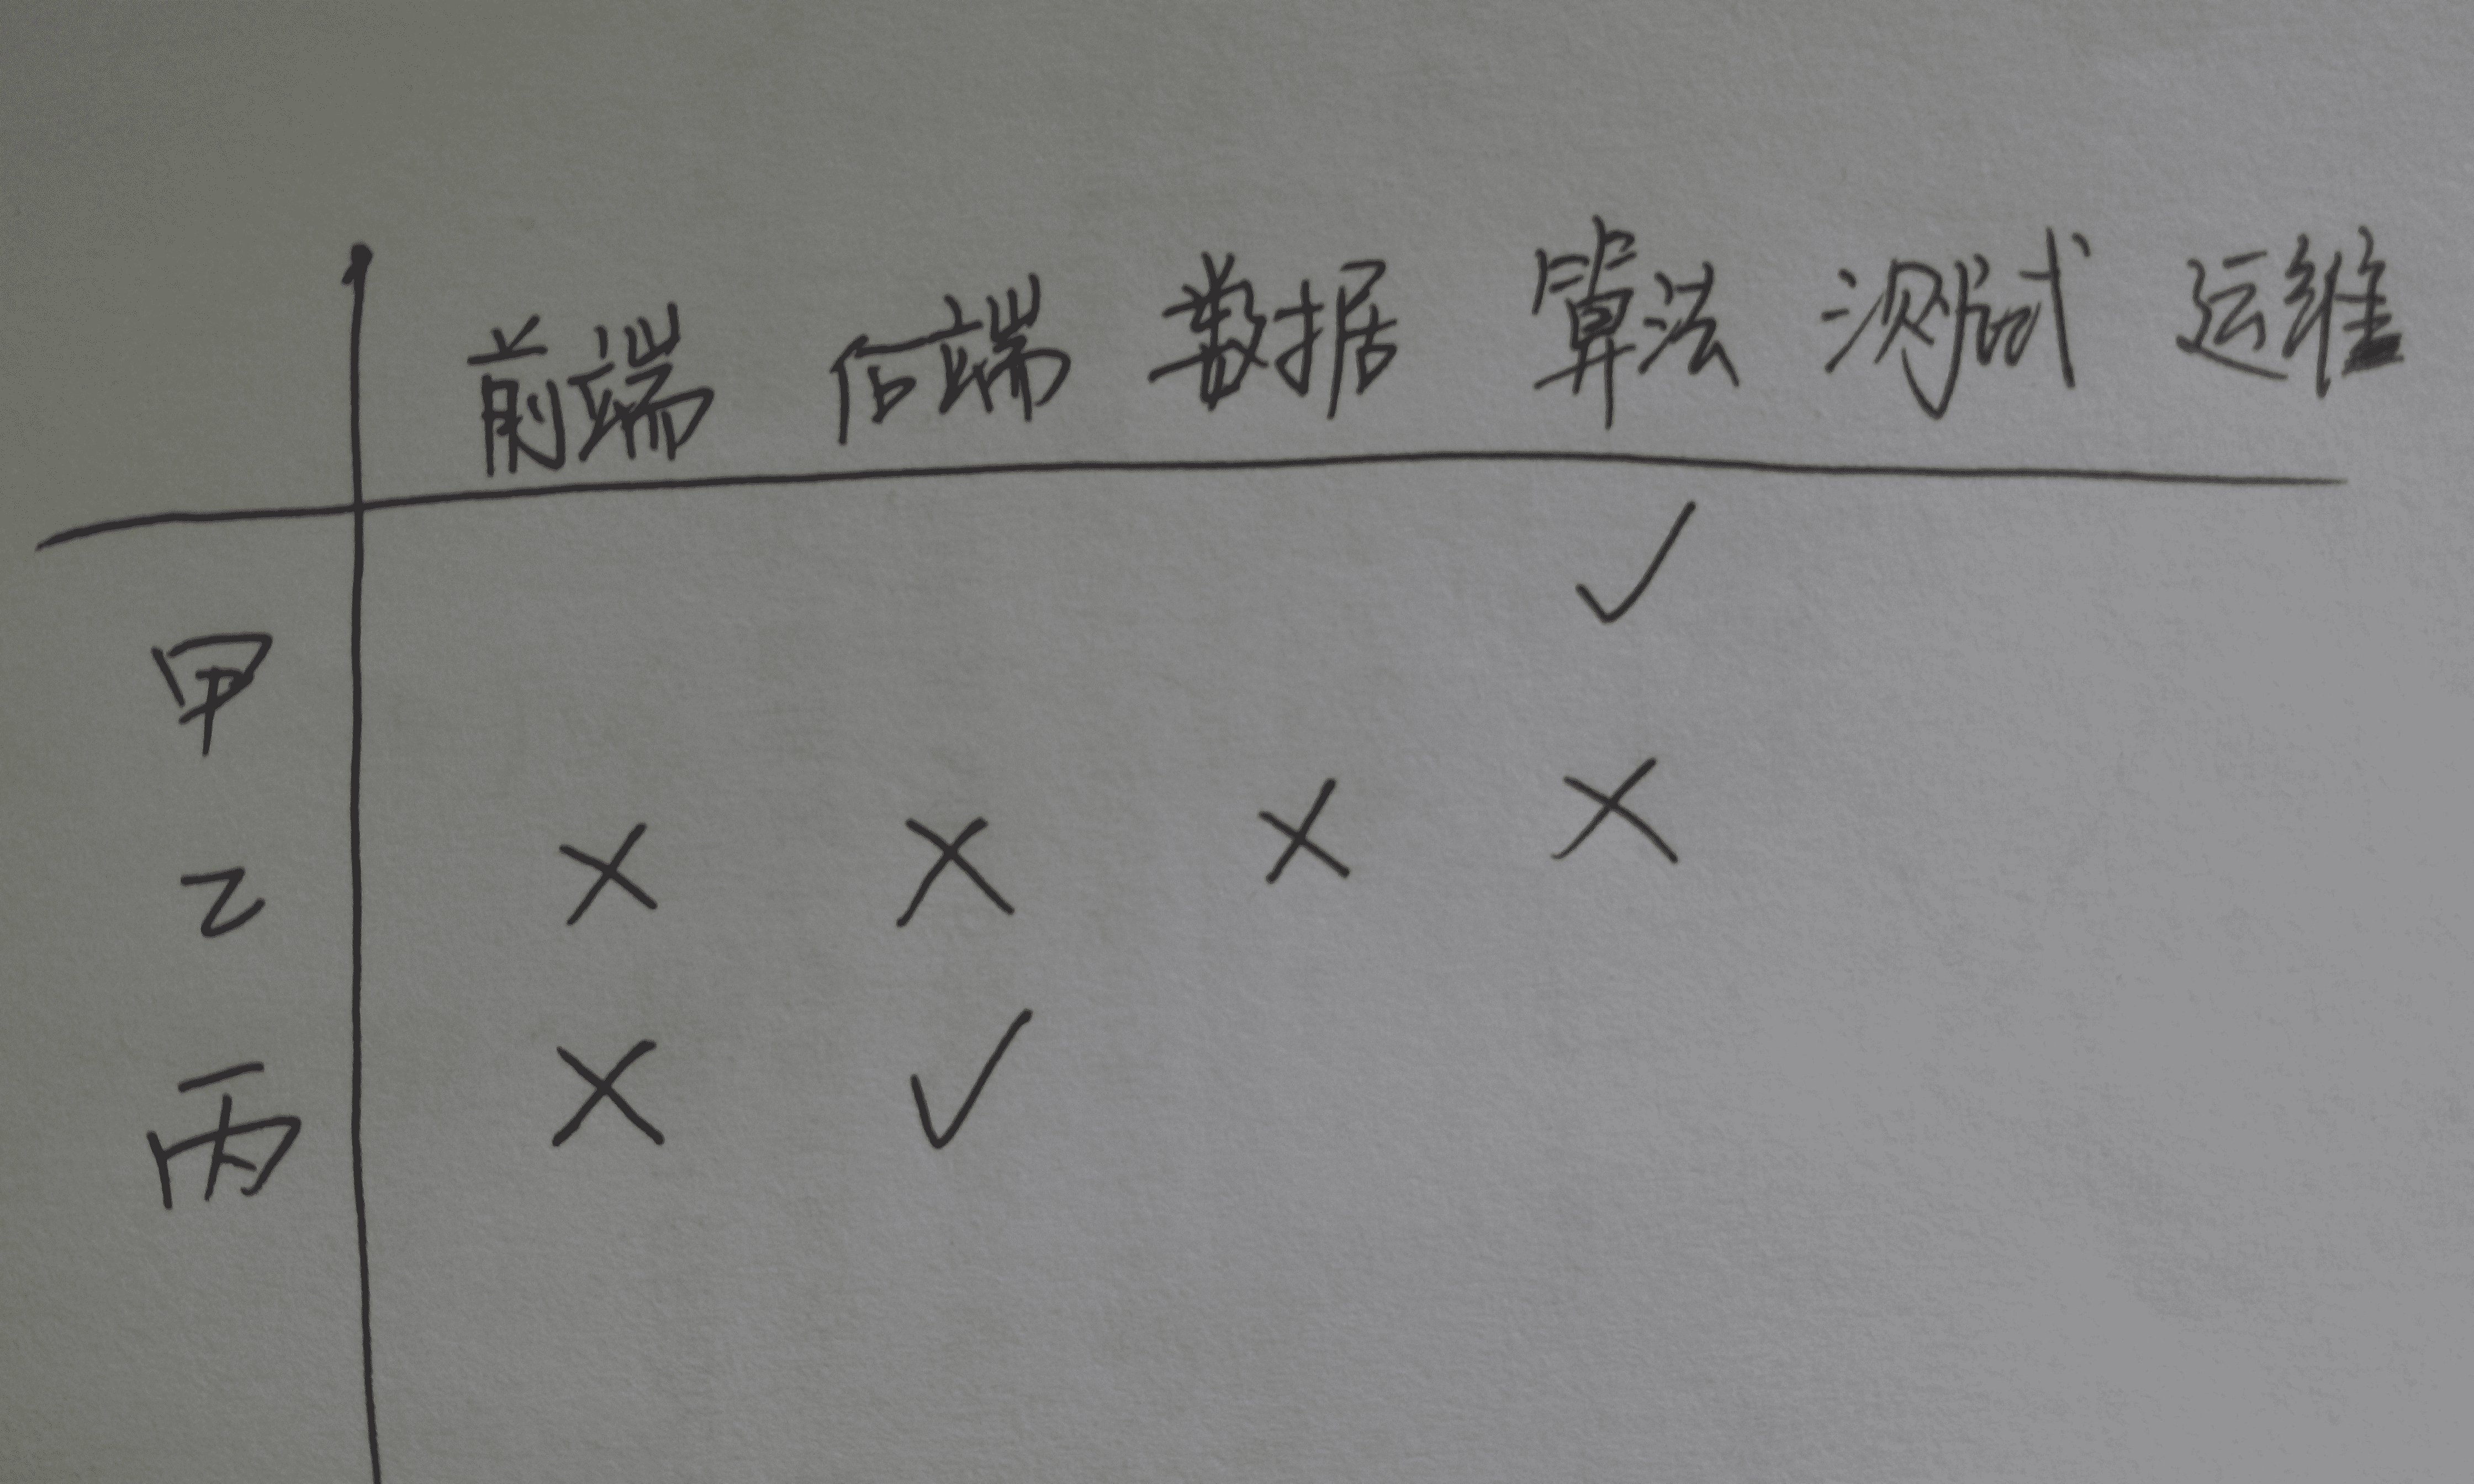 前端 后端 数据 算法 测试 运维
甲 ✓
乙 × × × ×
丙 × ✓